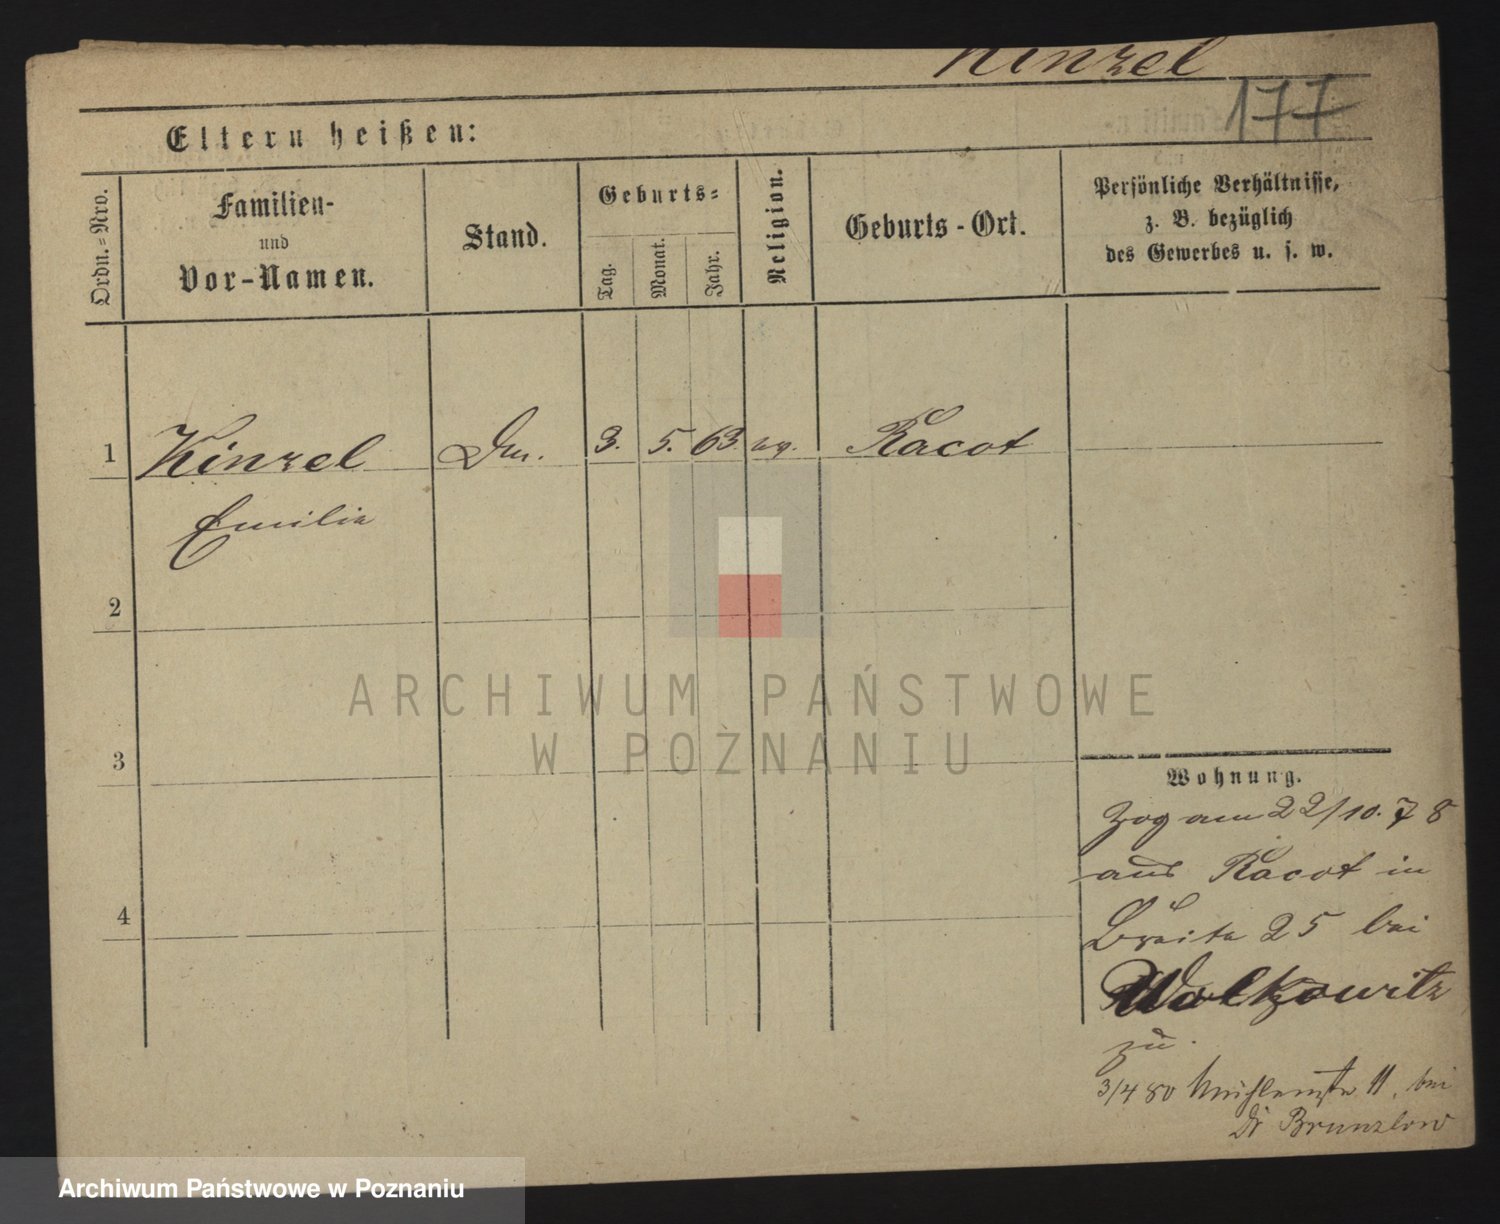 Kinzel
177
Eltern heißen:
Ordn.=Nro.
Familien-
und
Vor-Namen.
Stand.
Geburts=
Tag.
Monat.
Jahr.
Religion.
Geburts-Ort.
Persönliche Verhältnisse,
z. B. bezüglich
des Gewerbes u. s. w.
1 Kinzel 3. 5. 63. Racot
Emilie
2
3
4
Wohnung.
Zog am 22/10.78
aus Racot in
Breite 25 bei
Wolkowitz
zu.
3/4 80 Mühlenstr 11. bei
Dr Brunzlow
ARCHIWUM PAŃSTWOWE
W POZNANIU
Archiwum Państwowe w Poznaniu